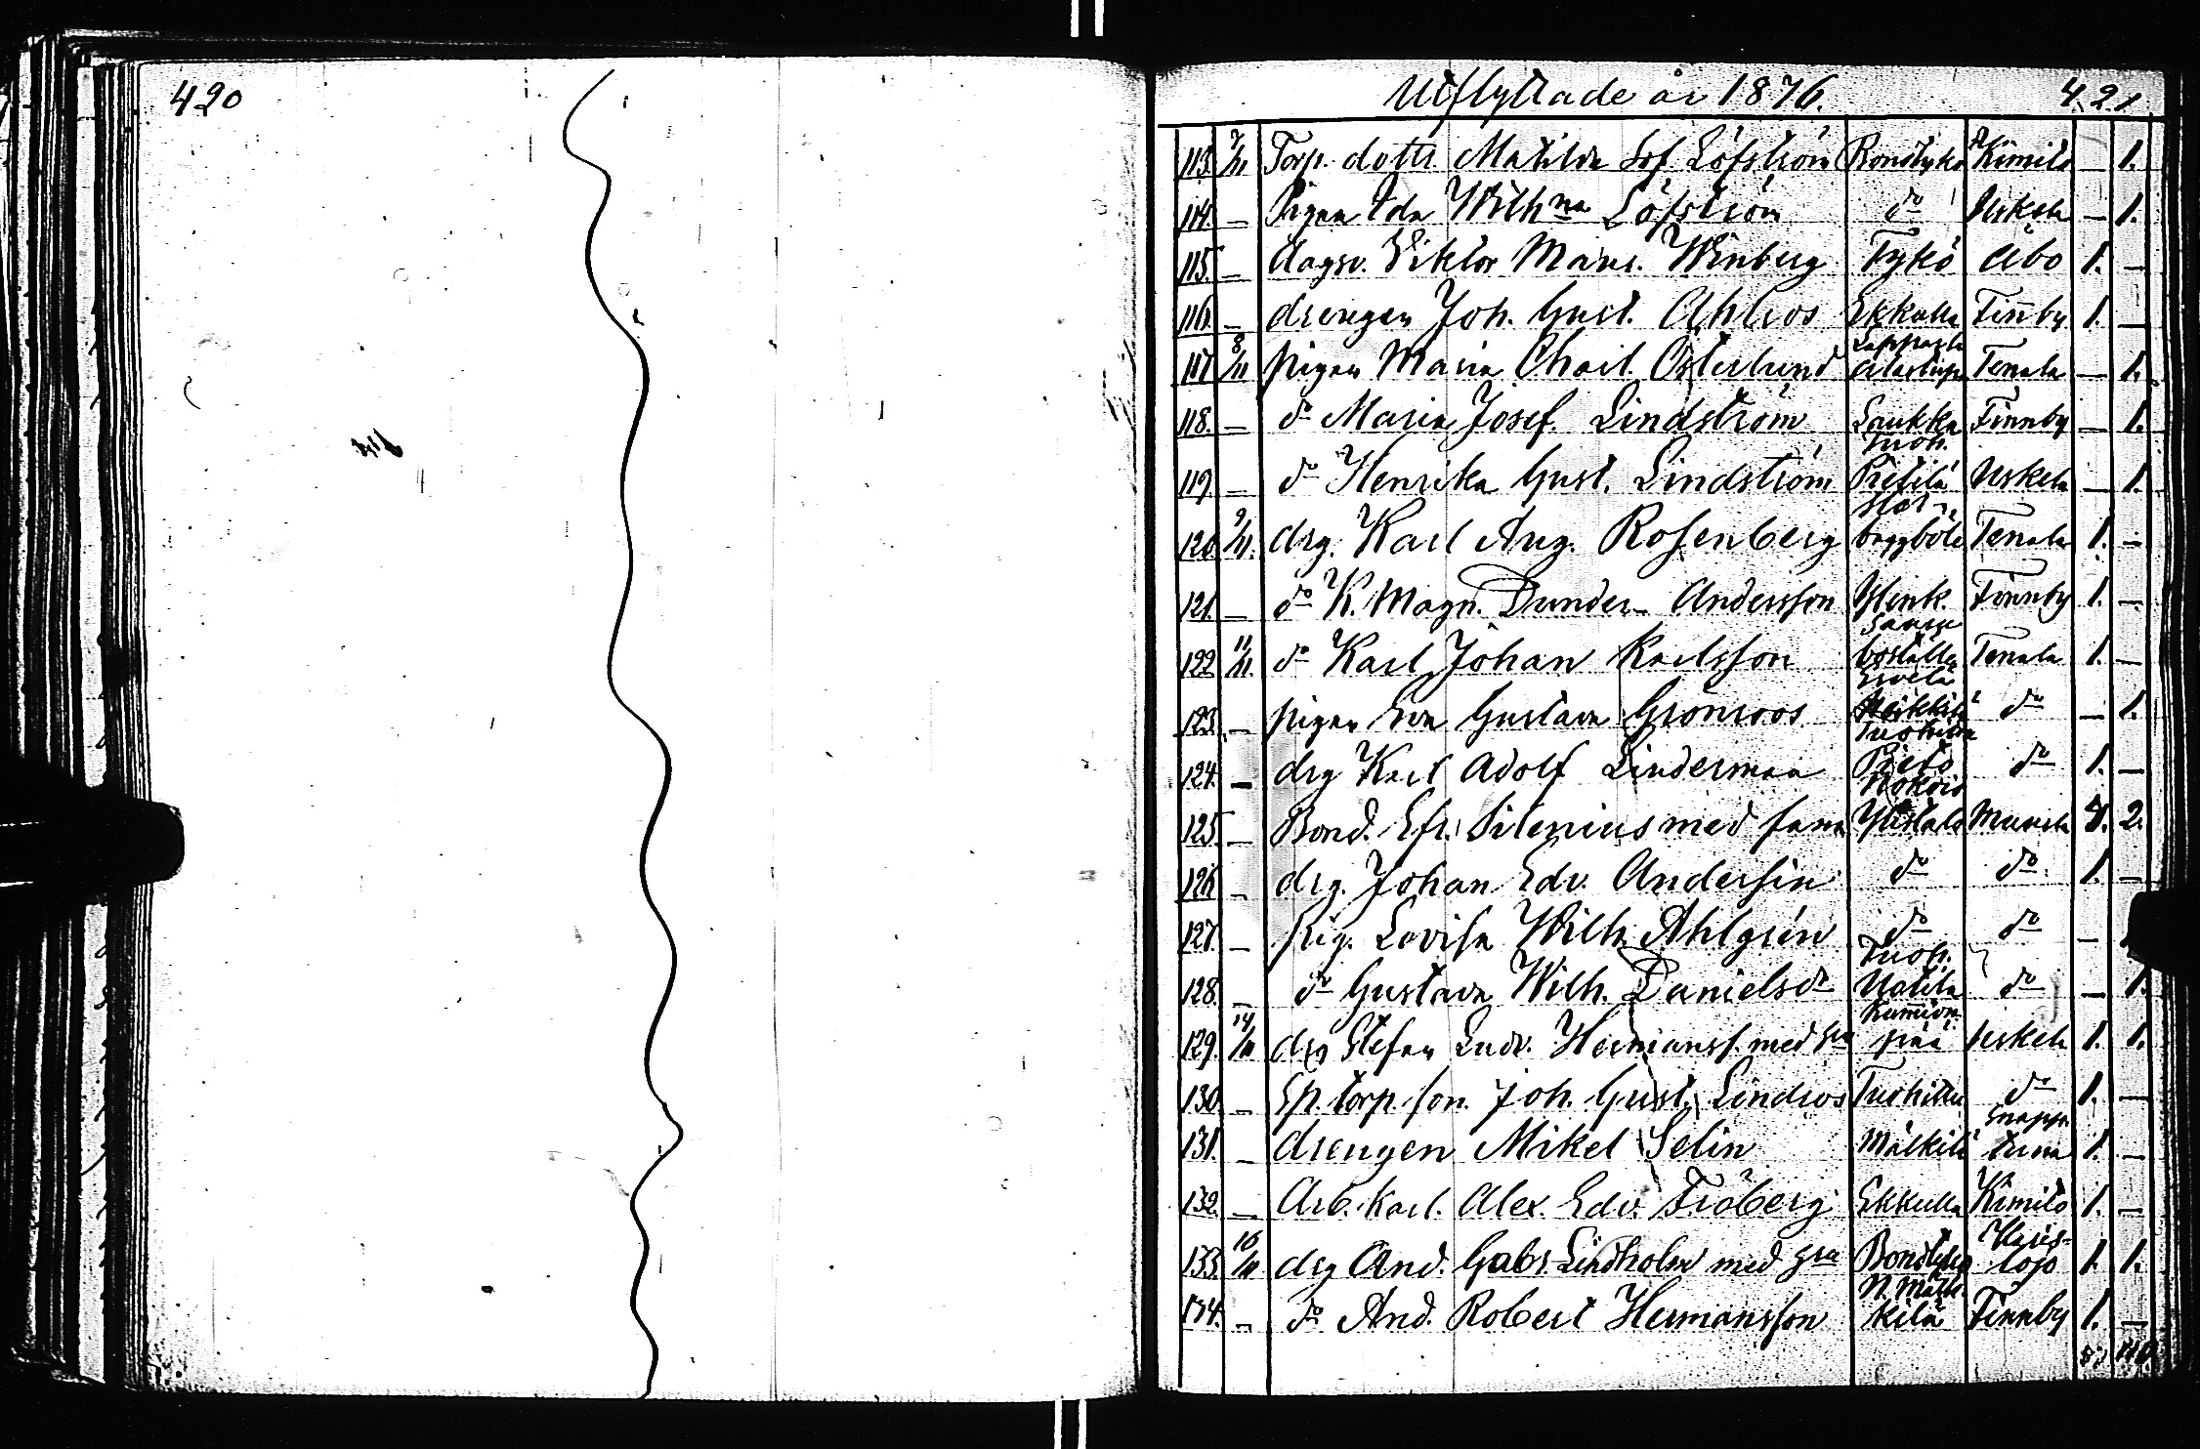 420
Utflyttade år 1876. 421
113. 7/11 Torp. dottr. Matilda Sof. Löfström Bondtykö Kimito — 1.
114. — Pigan Ida Wilhna Löfström do Uskela — 1.
115. — dagsv. Viktor Maur. Winberg Tykö Åbo 1. —
116. — drengen Joh. Gust. Ahlros Ekkulla Finnby 1. —
117. 8/11 pigan Maria Charl. Österlund Tenala — 1.
118. — do Maria Josef. Lindström Laukka Finnby — 1.
119. — do Henrika Gust. Lindström Pietilä Uskela — 1.
120. 9/11. drg. Karl Aug. Rosenberg Stor- baggböle Tenala 1. —
121. — do K. Magn. Dunder- Andersson Finnby 1. —
122 11/11. do Karl Johan Karlsson boställe Tenala 1. —
123. — pigan Eva Gustava Grönroos do — 1.
124. — drg Karl Adolf Linderman do 1. —
125. — Bond. Efr. Silenius med fam Ylistalo Muurla 4. 2.
126. — drg. Johan Edv. Andersin do do. 1. —
127. — pig. Lovisa Wilh. Ahlgrén do do —
128. — do Gustava Wilh. Danielsdr Tuoh. Uotila do — 1.
129. 14/11 drg Stefan Ludv. Hermanss. med hu pää Uskela 1. 1.
130. — Sp. torp. son. Joh. Gust. Lindros Tuohittu do 1. —
131. — drengen Mikel Selin Mälkilä Snapper tuna 1. —
132. — Arb. karl. Alex. Edv. Fröberg Ekkulla Kimito 1. —
133. 16/11 drg And. Gabr. Lindholm med hu Bondtykö Karis- lojo 1. 1.
134. — do And. Robert Hermansson N. Mälk- kilä Finnby 1. —